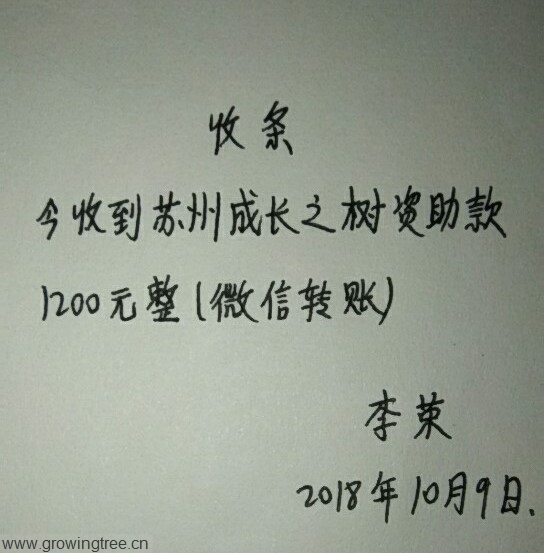 收条
今收到苏州成长之树资助款
1200元整(微信转账)
李荣
2018年10月9日.
www.growingtree.cn